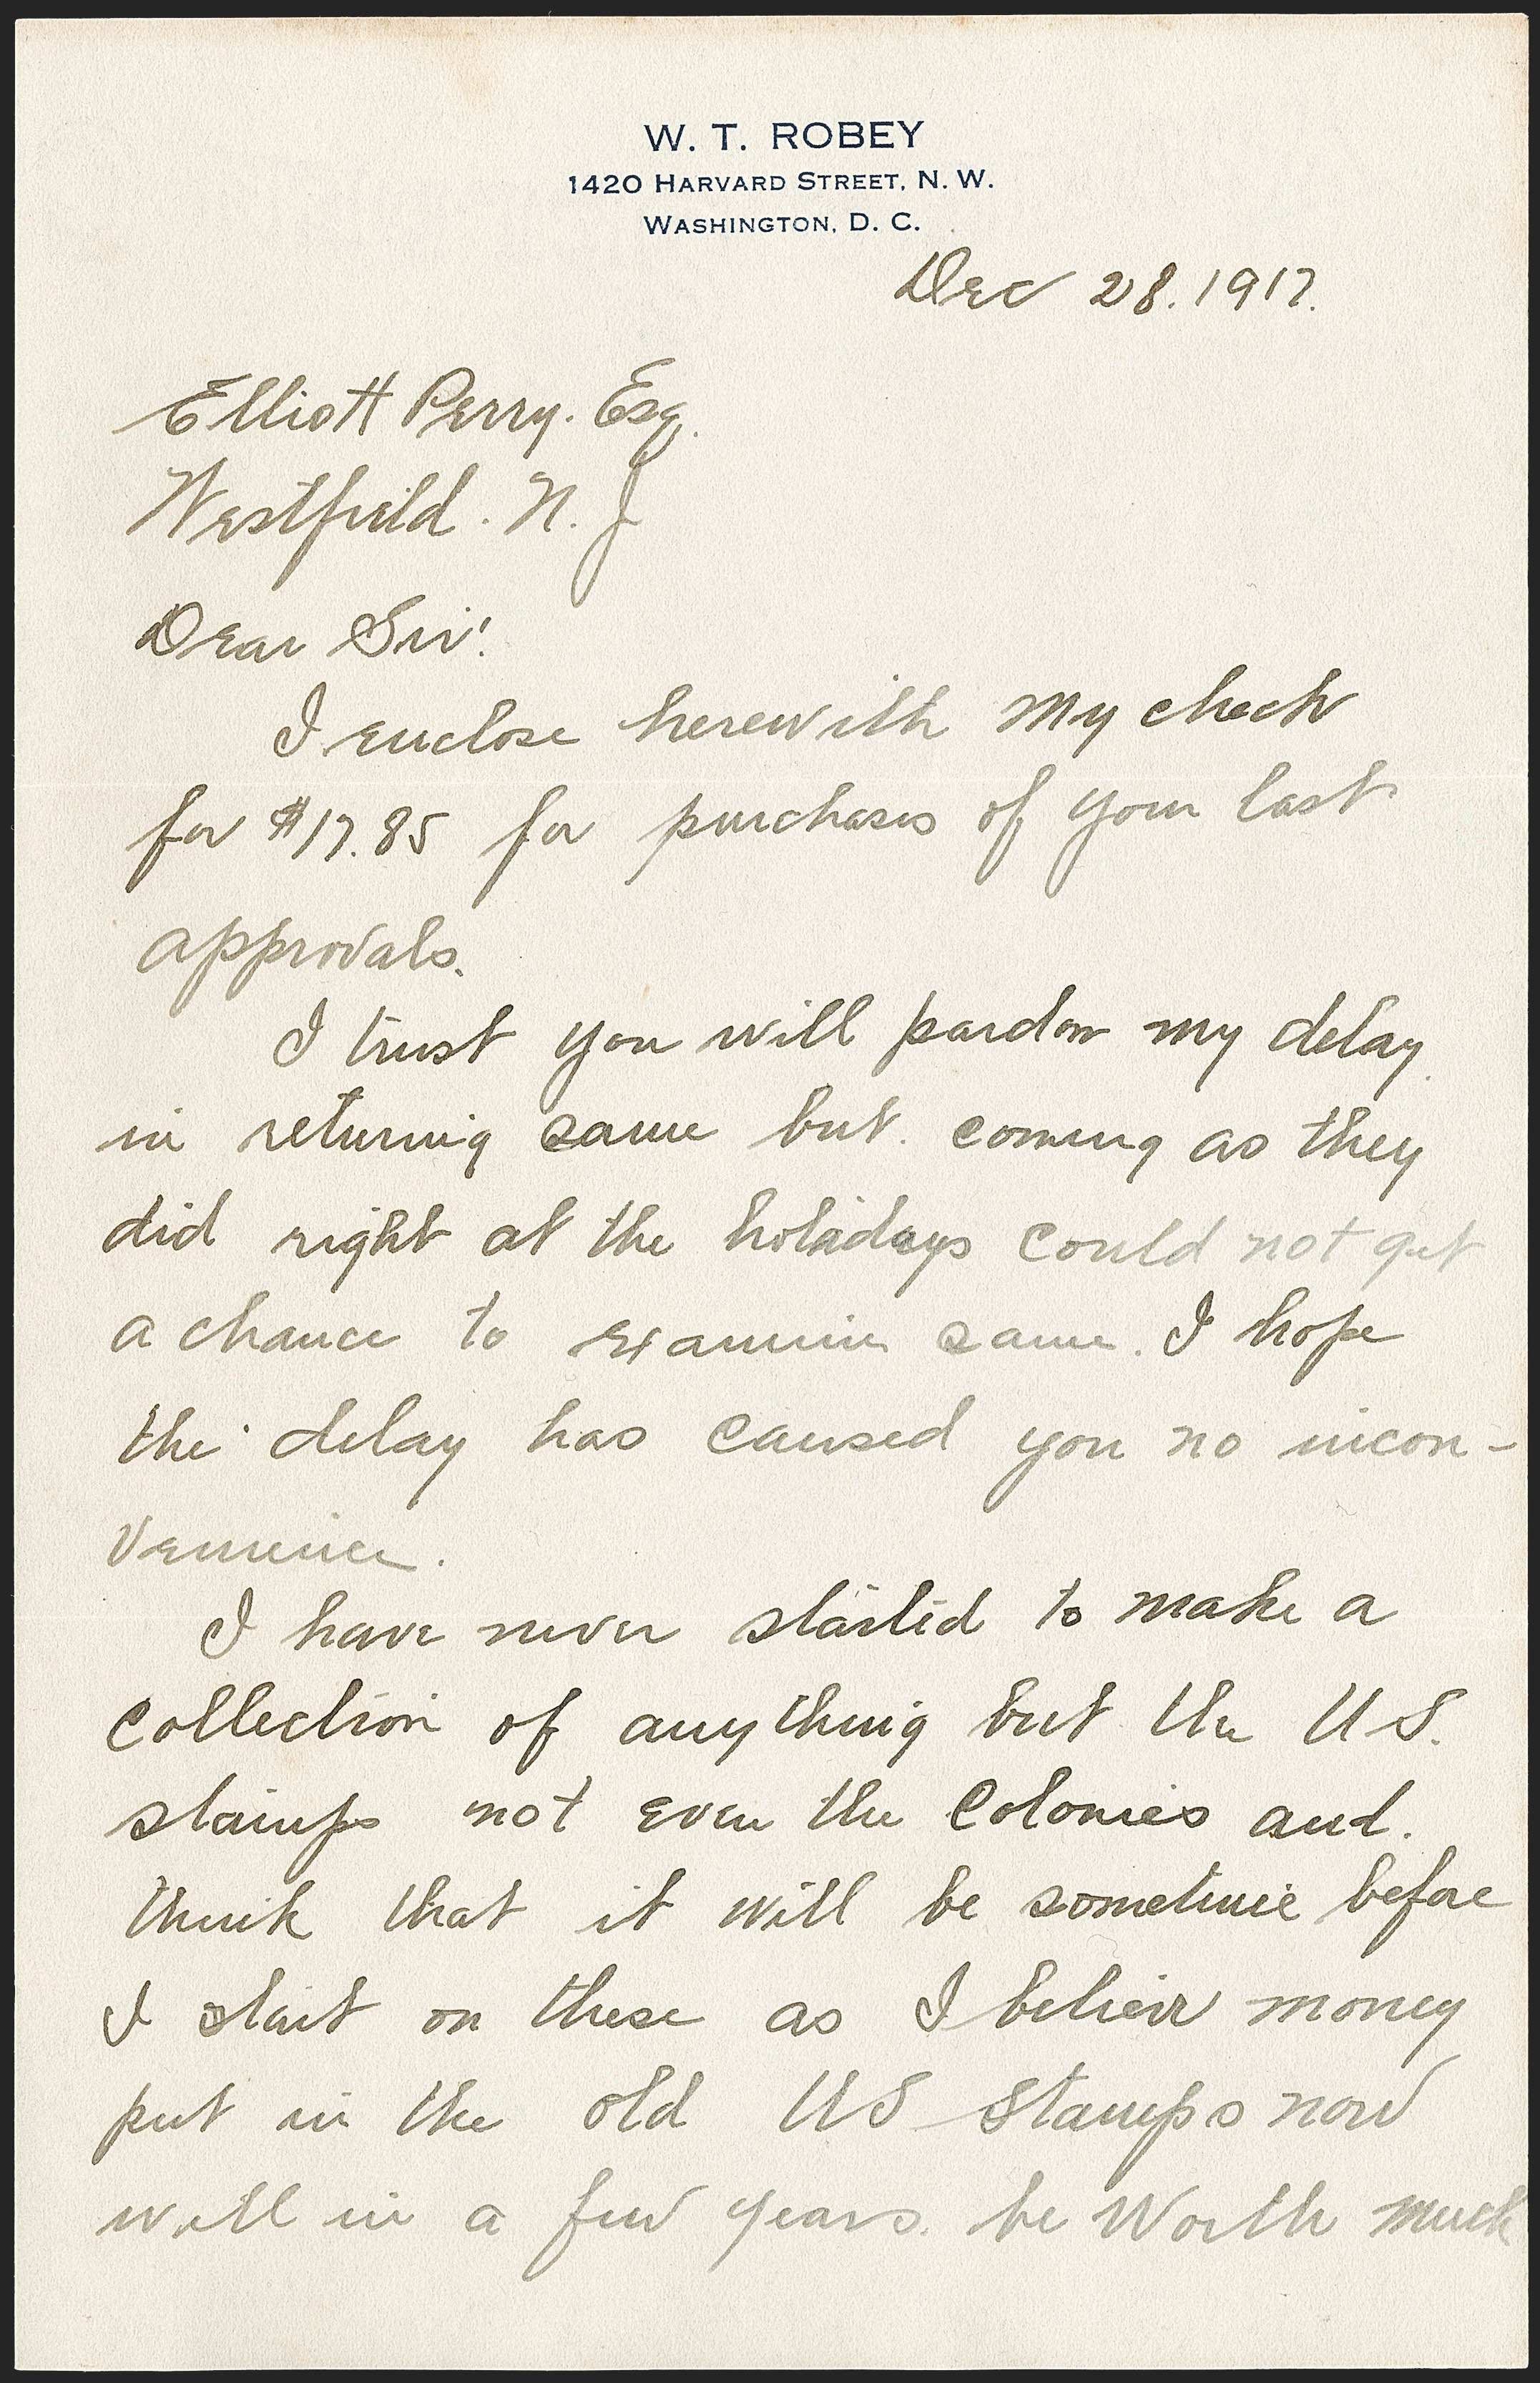 W. T. ROBEY
1420 HARVARD STREET, N. W.
WASHINGTON, D. C.
Dec 28. 1917.
Elliott Perry. Esq.
Westfield. N. J
Dear Sir!
I enclose herewith my check
for $17.85 for purchases of your last
approvals.
I trust you will pardon my delay
in returning same but coming as they
did right at the holidays could not get
a chance to examine same. I hope
the delay has caused you no incon-
venience.
I have never started to make a
collection of anything but the U S.
stamps not even the Colonies and.
think that it will be sometime before
I start on these as I believe money
put in the old U S stamps now
will in a few years. be worth much